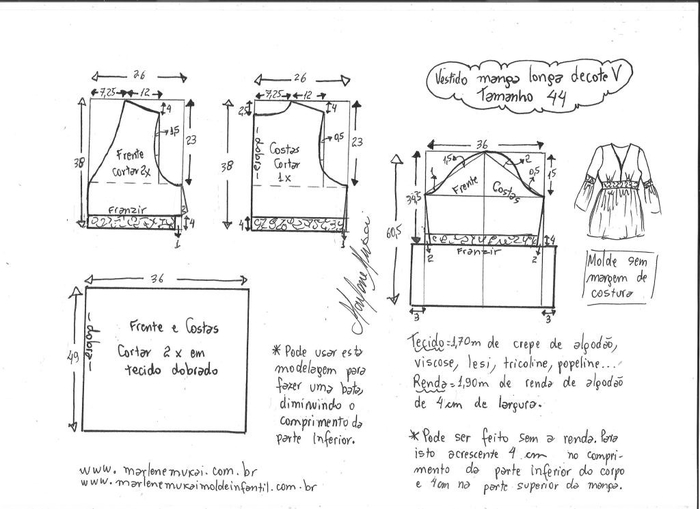 Vestido manga longa decote V
Tamanho 44
26
7,25 12
4
1,5
23
38
Frente
Cortar 2x
Franzir
2
4
1
26
7,25 12
2,5
4
0,5
23
38
-dobra-
Costas
Cortar
1x
4
1
36
1,5
2
1
0,5
15
Frente
Costas
34,5
60,5
4
Franzir
2
2
3
3
Molde sem
margem de
costura
Marlene Mukai
36
49
-dobra-
Frente e Costas
Cortar 2x em
tecido dobrado
* Pode usar esta
modelagem para
fazer uma bata,
diminuindo o
comprimento da
parte inferior.
Tecido=1,70m de crepe de algodão,
viscose, lesi, tricoline, popeline...
Renda=1,90m de renda de algodão
de 4cm de largura.
* Pode ser feito sem a renda. Para
isto acrescente 4 cm no compri-
mento da parte inferior do corpo
e 4cm na parte superior da manga.
www.marlenemukai.com.br
www.marlenemukaimoldeinfantil.com.br